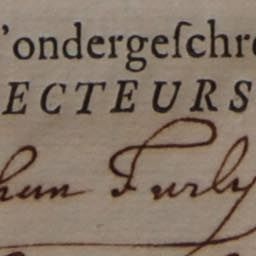 'ondergeſchre
ECTEURS
han Furly